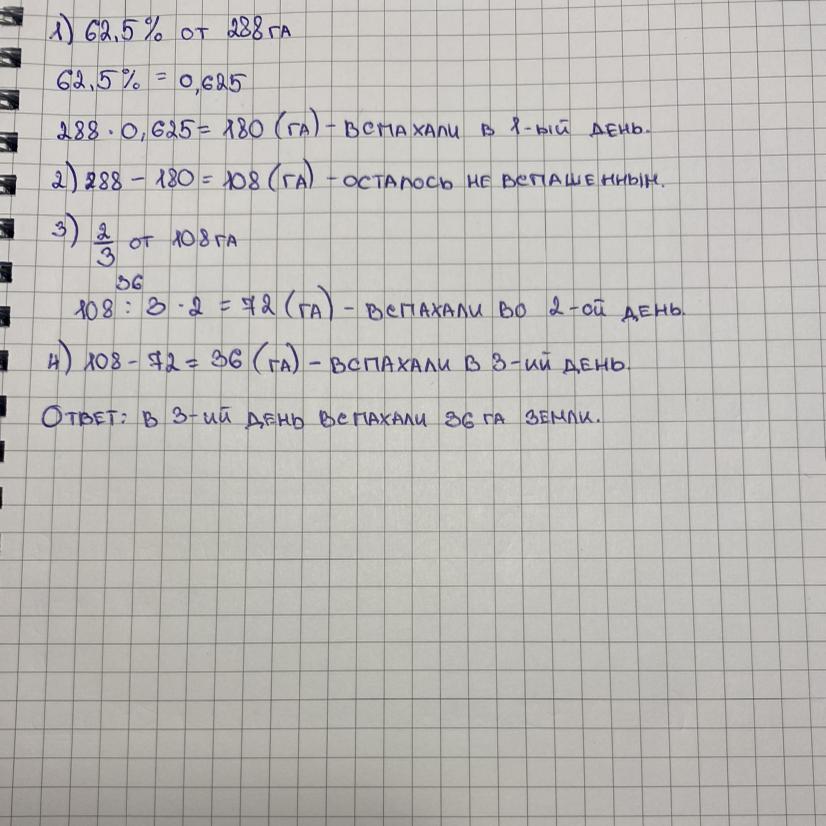 1) 62,5% от 288 га
62,5% = 0,625
288 · 0,625 = 180 (га) – вспахали в 1-ый день.
2) 288 – 180 = 108 (га) – осталось не вспашенным.
3) 2/3 от 108 га
36
108 : 3 · 2 = 72 (га) – вспахали во 2-ой день.
4) 108 – 72 = 36 (га) – вспахали в 3-ий день.
Ответ: в 3-ий день вспахали 36 га земли.